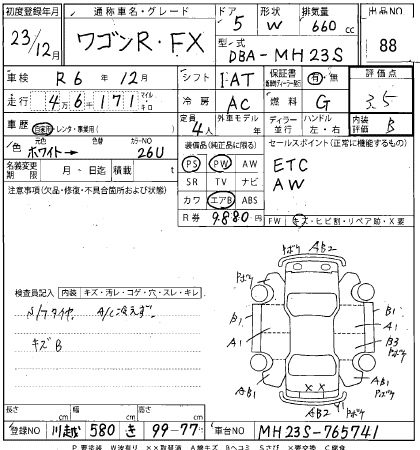 初度登録年月 通称車名・グレード ドア 形状 排気量 出品NO
23/12月 ワゴンR・FX 5 W 660cc 88
型・式 DBA-MH23S
車検 R6年12月 シフト IAT 保証書 有・無 評価点
走行 4万6千171 マイル キロ 冷房 AC 燃料 G 3.5
車歴 自家用・レンタ・事業用( ) 定員 4人 外車モデル 年 ディーラー 並行 ハンドル 左・右 内装評価 B
色 元色 ホワイト→ 色替 カラーNO 26U
装備品(純正品に限る) セールスポイント(正常に機能するもの)
名義変更期限 月 日 積載 t
PS PW AW ETC
SR TV ナビ AW
カワ エアB ABS
R券 9880円
注意事項(欠品・修復・不具合箇所および状態)
FW キズ・ヒビ割・リペア跡・X要
検査員記入 内装 キズ・汚レ・コゲ・穴・スレ・キレ
A/C冷えず。
キズB
トボケ AB2
B1 A1 AB1
B1 A1 B3
XX
AB2 AB1
長さ cm 幅 cm 高さ cm
登録NO 川越 580 き 99-77 車台NO MH23S-765741
P要塗装 W波有り XX取替済 A線キズ Bヘコミ Sさび X要交換 C腐食